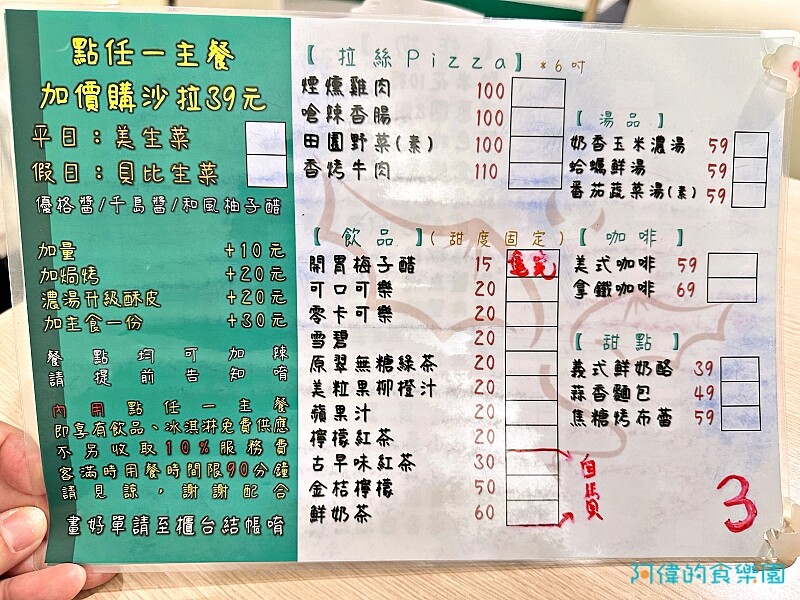 點任一主餐
加價購沙拉39元
平日：美生菜
假日：貝比生菜
優格醬/千島醬/和風柚子醋
加量 +10元
加焗烤 +20元
濃湯升級酥皮 +20元
加主食一份 +30元
餐點均可加辣
請提前告知唷
內用點任一主餐
即享有飲品、冰淇淋免費供應
不另收取10%服務費
客滿時用餐時間限90分鐘
請見諒，謝謝配合
畫好單請至櫃台結帳唷
【拉絲Pizza】*6吋
煙燻雞肉 100
嗆辣香腸 100
田園野菜(素) 100
香烤牛肉 110
【飲品】(甜度固定)
開胃梅子醋 15 售完
可口可樂 20
零卡可樂 20
雪碧 20
原翠無糖綠茶 20
美粒果柳橙汁 20
蘋果汁 20
檸檬紅茶 20
古早味紅茶 30
金桔檸檬 50
鮮奶茶 60
自費
【湯品】
奶香玉米濃湯 59
蛤蠣鮮湯 59
番茄蔬菜湯(素) 59
【咖啡】
美式咖啡 59
拿鐵咖啡 69
【甜點】
義式鮮奶酪 39
蒜香麵包 49
焦糖烤布蕾 59
3
阿偉的食樂園